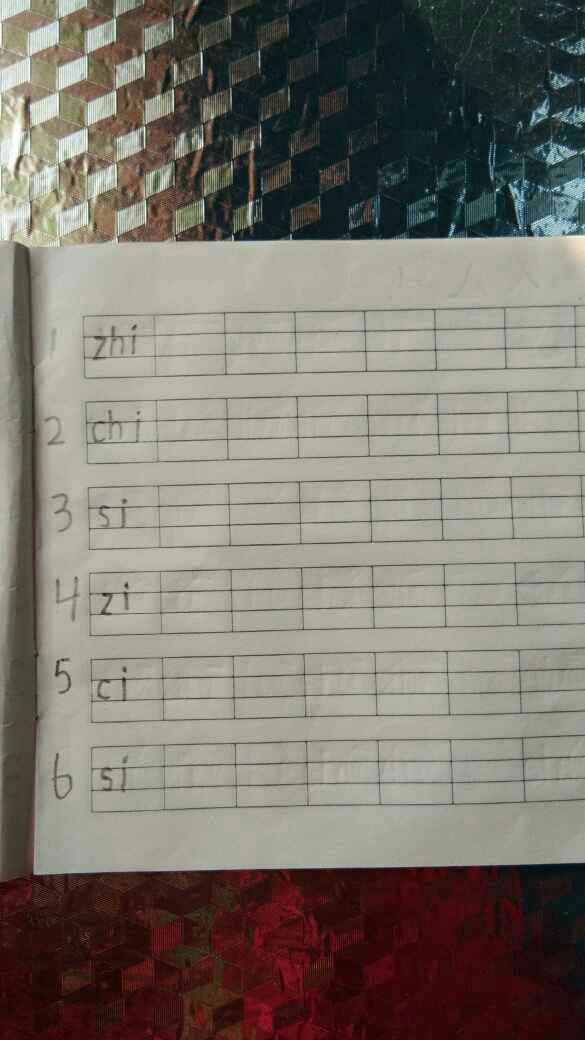 1 zhi
2 chi
3 si
4 zi
5 ci
6 si